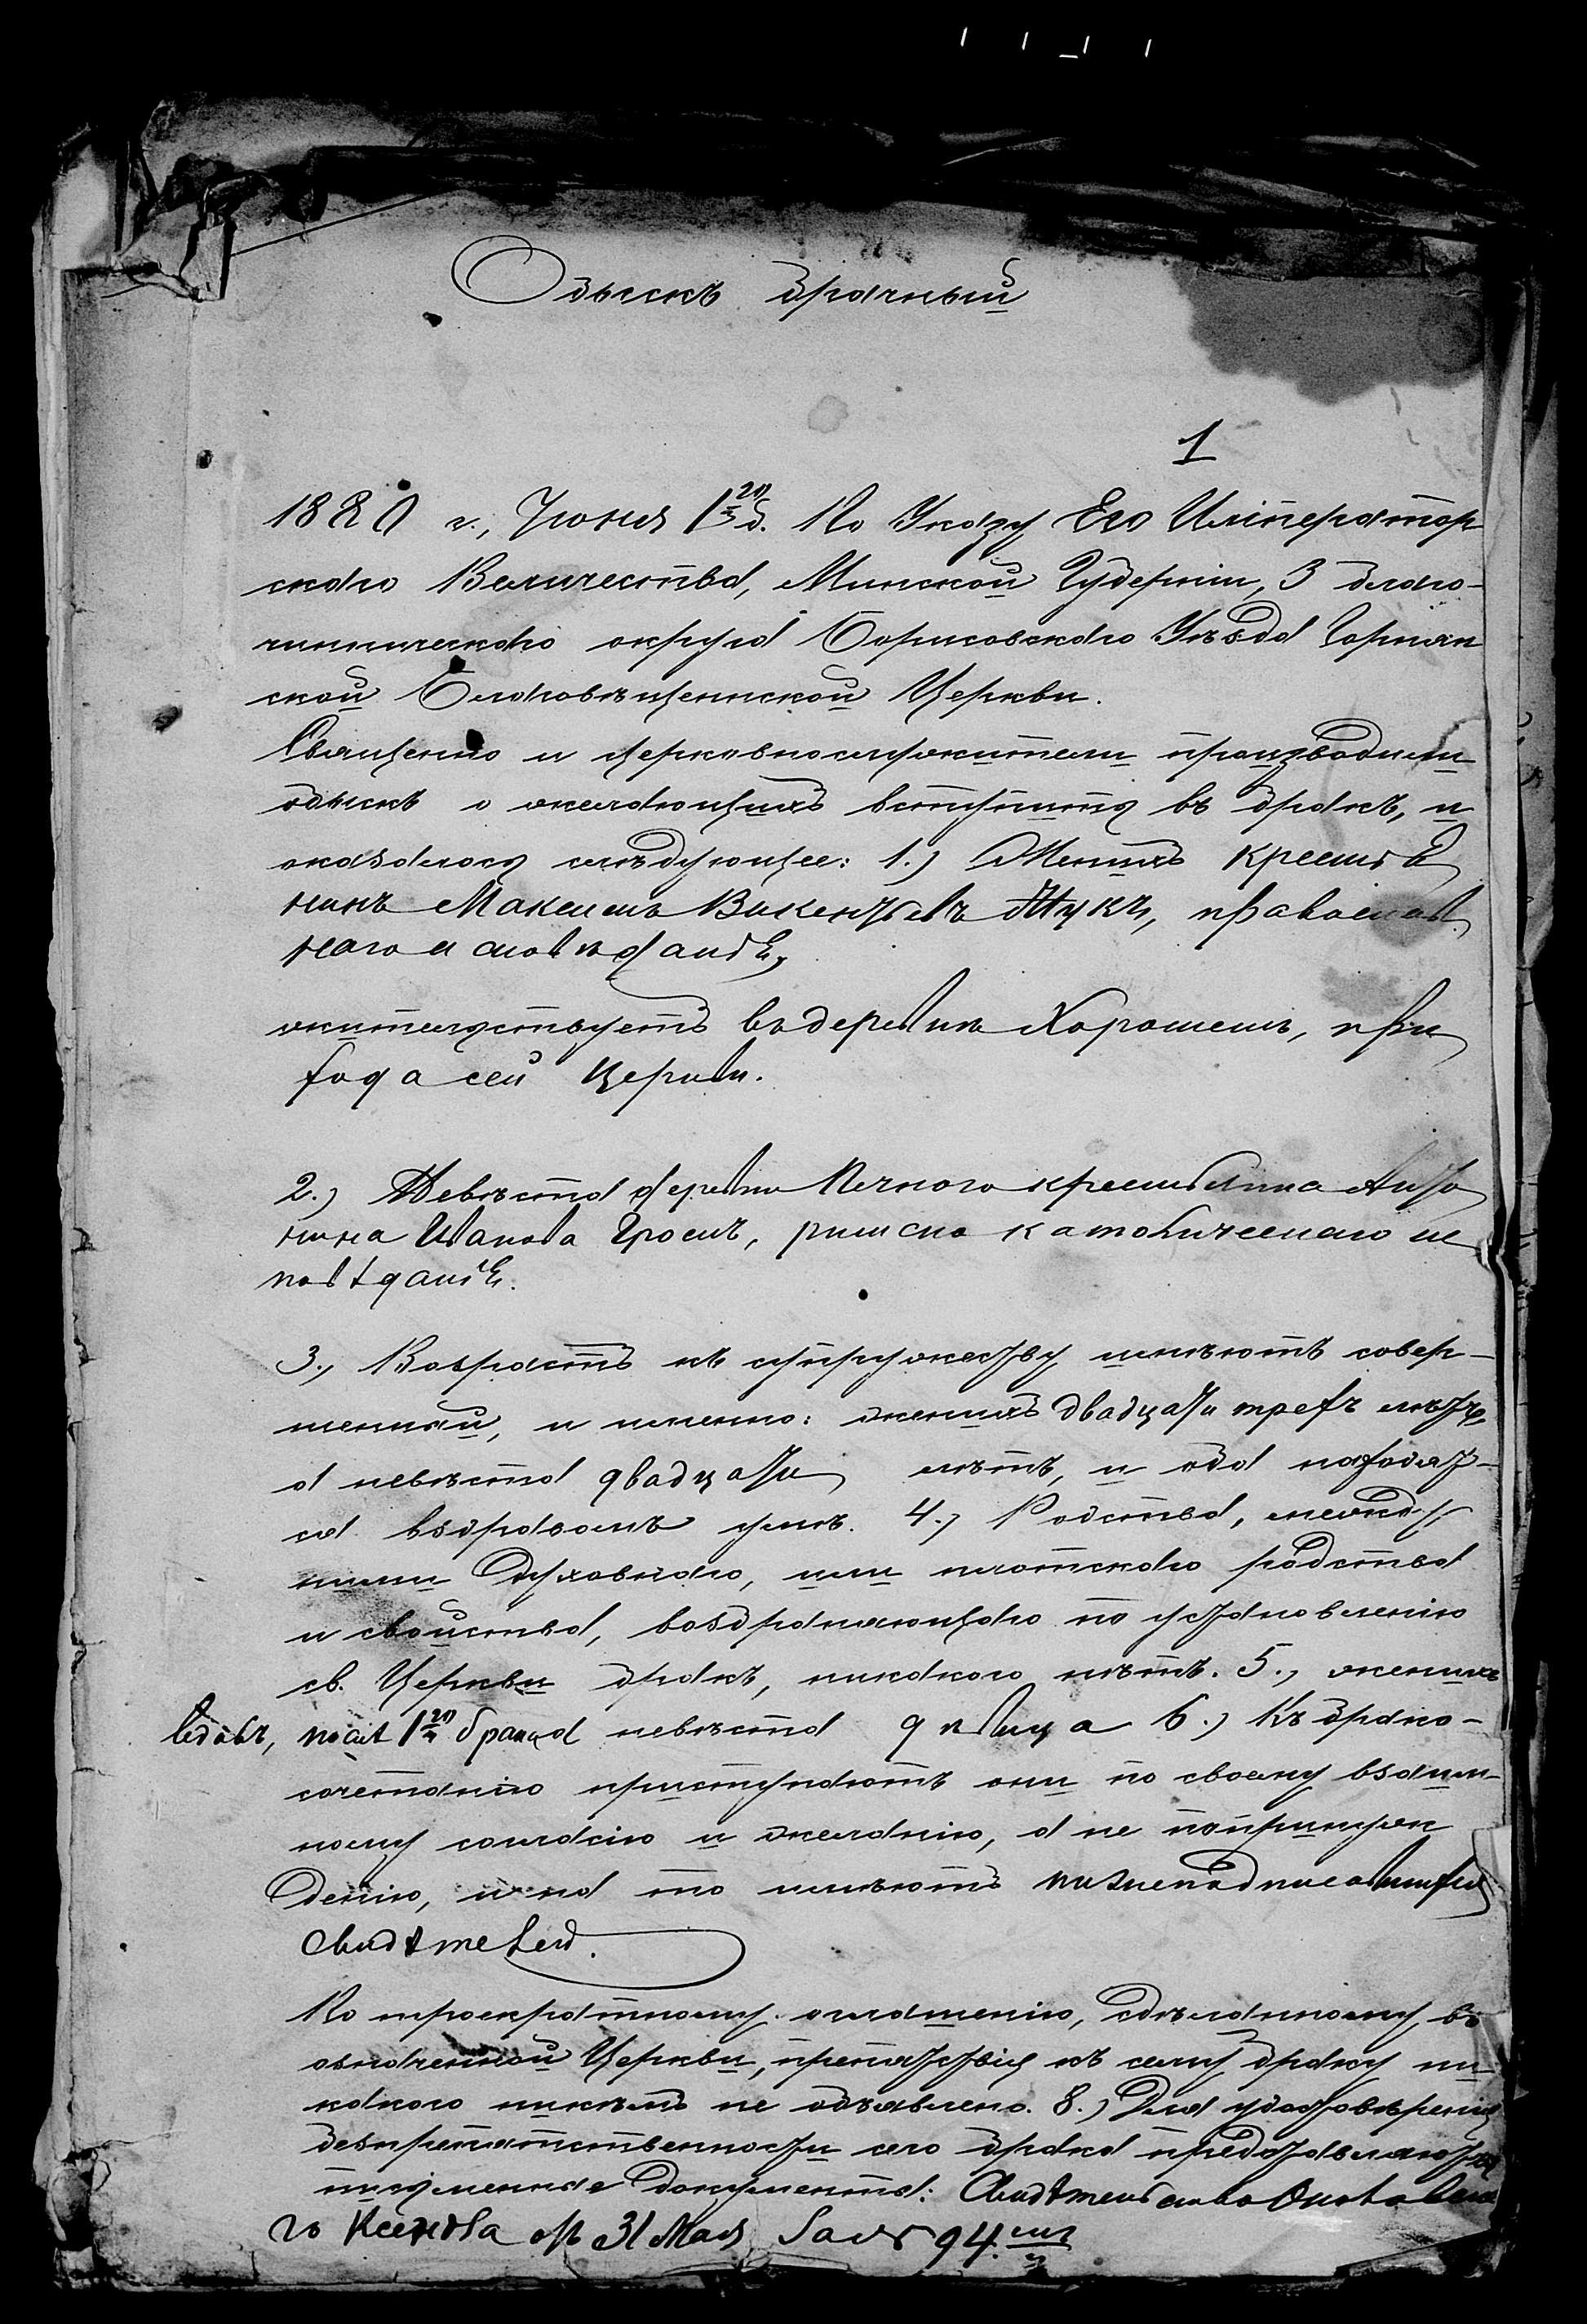 Обыскъ брачный
1
1880 г., Іюня 1го д. По Указу Его Император
скаго Величества, Минской Губерніи, 3 благо-
чинническаго округа Борисовскаго Уѣзда
ской Благовѣщенской Церкви.
Священно и церковнослужители производили
обыскъ о желающихъ вступить въ бракъ, и
оказалось слѣдующее: 1.) Женихъ крестья
нинъ Максимъ Викентьевъ Жукъ, православ
наго исповѣданія,
жительствуетъ въ деревнѣ Хорошемъ, при
хода сей церкви.
2.) Невѣста деревни крестьянка Анто
нина Иванова Громъ, римско католическаго ис
повѣданія.
3., Возрастъ къ супружеству имѣютъ совер-
шенный, и именно: женихъ двадцати трехъ лѣтъ,
а невѣста двадцати лѣтъ, и оба находят-
ся въ здравомъ умѣ. 4., Родства, между
ними духовнаго, или плотскаго родства
и свойства, возбраняющаго по установленію
св. Церкви бракъ, никакого нѣтъ. 5., женихъ
вдовъ, послѣ 1го брака невѣста дѣвица 6.) Къ брако-
сочетанію приступаютъ они по своему взаим-
ному согласію и желанію, а не по принуж
денію, и на то имѣютъ нижеподписавшихся
свидѣтелей.
По троекратному оглашенію, сдѣланному въ
означенной Церкви, препятствія къ сему браку ни-
какого никѣмъ не объявлено. 8.) Для удостовѣренія
безпрепятственности сего брака представляются
письменные документы: Свидѣтельство
го Ксендза отъ 31 Мая за № 94.